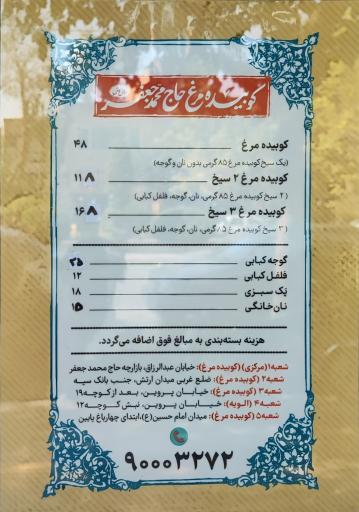 کوبیده مرغ حاج محمد جعفر
کوبیده مرغ ۴۸
(یک سیخ کوبیده مرغ ۸۵ گرمی بدون نان و گوجه)
کوبیده مرغ ۲ سیخ ۱۱۸
(۲ سیخ کوبیده مرغ ۸۵ گرمی، نان، گوجه، فلفل کبابی)
کوبیده مرغ ۳ سیخ ۱۶۸
(۳ سیخ کوبیده مرغ ۸۵ گرمی، نان، گوجه، فلفل کبابی)
گوجه کبابی ۲۵
فلفل کبابی ۱۲
پک سبزی ۱۸
نان خانگی ۱۵
هزینه بسته‌بندی به مبالغ فوق اضافه می‌گردد.
شعبه۱(مرکزی) (کوبیده مرغ): خیابان عبدالرزاق، بازارچه حاج محمد جعفر
شعبه۲ (کوبیده مرغ): ضلع غربی میدان ارتش، جنب بانک سپه
شعبه۳ (کوبیده مرغ): خیابان پروین، بعد از کوچه ۱۹
شعبه۴ (آلویه): خیابان پروین، نبش کوچه ۱۲
شعبه۵ (کوبیده مرغ): میدان امام حسین(ع)، ابتدای چهارباغ پایین
۹۰۰۰۳۲۷۲